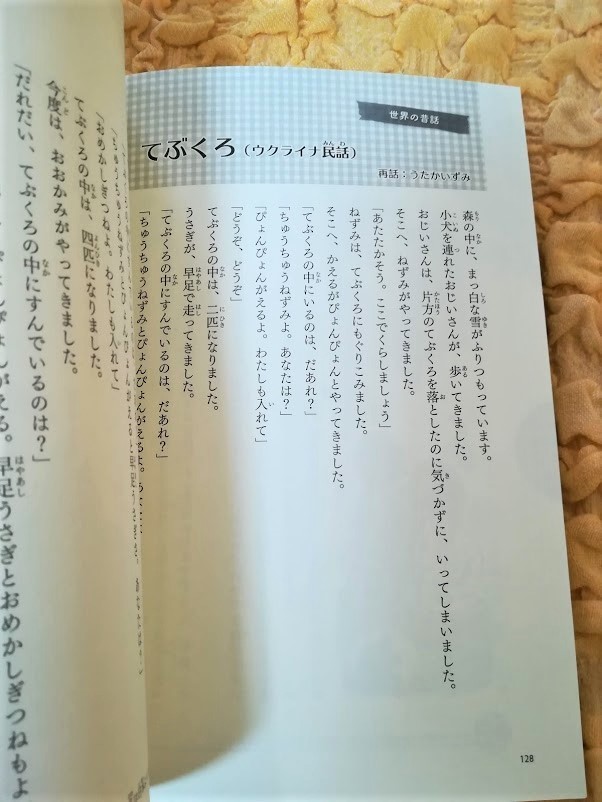 世界の昔話
てぶくろ(ウクライナ民話)
再話:うたかいずみ
森の中に、まっ白な雪がふりつもっています。
小犬を連れたおじいさんが、歩いてきました。
おじいさんは、片方のてぶくろを落としたのに気づかずに、いってしまいました。
そこへ、ねずみがやってきました。
「あたたかそう。ここでくらしましょう」
ねずみは、てぶくろにもぐりこみました。
そこへ、かえるがぴょんぴょんとやってきました。
「てぶくろの中にいるのは、だあれ?」
「ちゅうちゅうねずみよ。あなたは?」
「ぴょんぴょんがえるよ。わたしも入れて」
「どうぞ、どうぞ」
てぶくろの中は、二匹になりました。
うさぎが、早足で走ってきました。
「てぶくろの中にすんでいるのは、だあれ?」
「ちゅうちゅうねずみとぴょんぴょんがえるよ。
128
「おめかしぎつねよ。わたしも入れて」
てぶくろの中は、四匹になりました。
今度は、おおかみがやってきました。
「だれだい、てぶくろの中にすんでいるのは?」
ぴょんがえる。早足うさぎとおめかしぎつねもよ